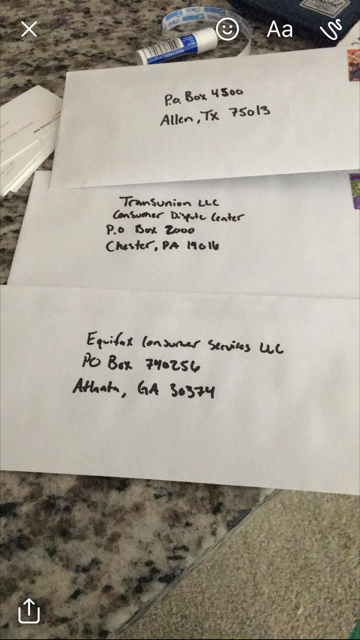 Aa
P.O. Box 4500
Allen, TX 75013
Transunion LLC
Consumer Dispute Center
P.O Box 2000
Chester, PA 19016
Equifax Consumer Services LLC
PO Box 740256
Atlanta, GA 30374